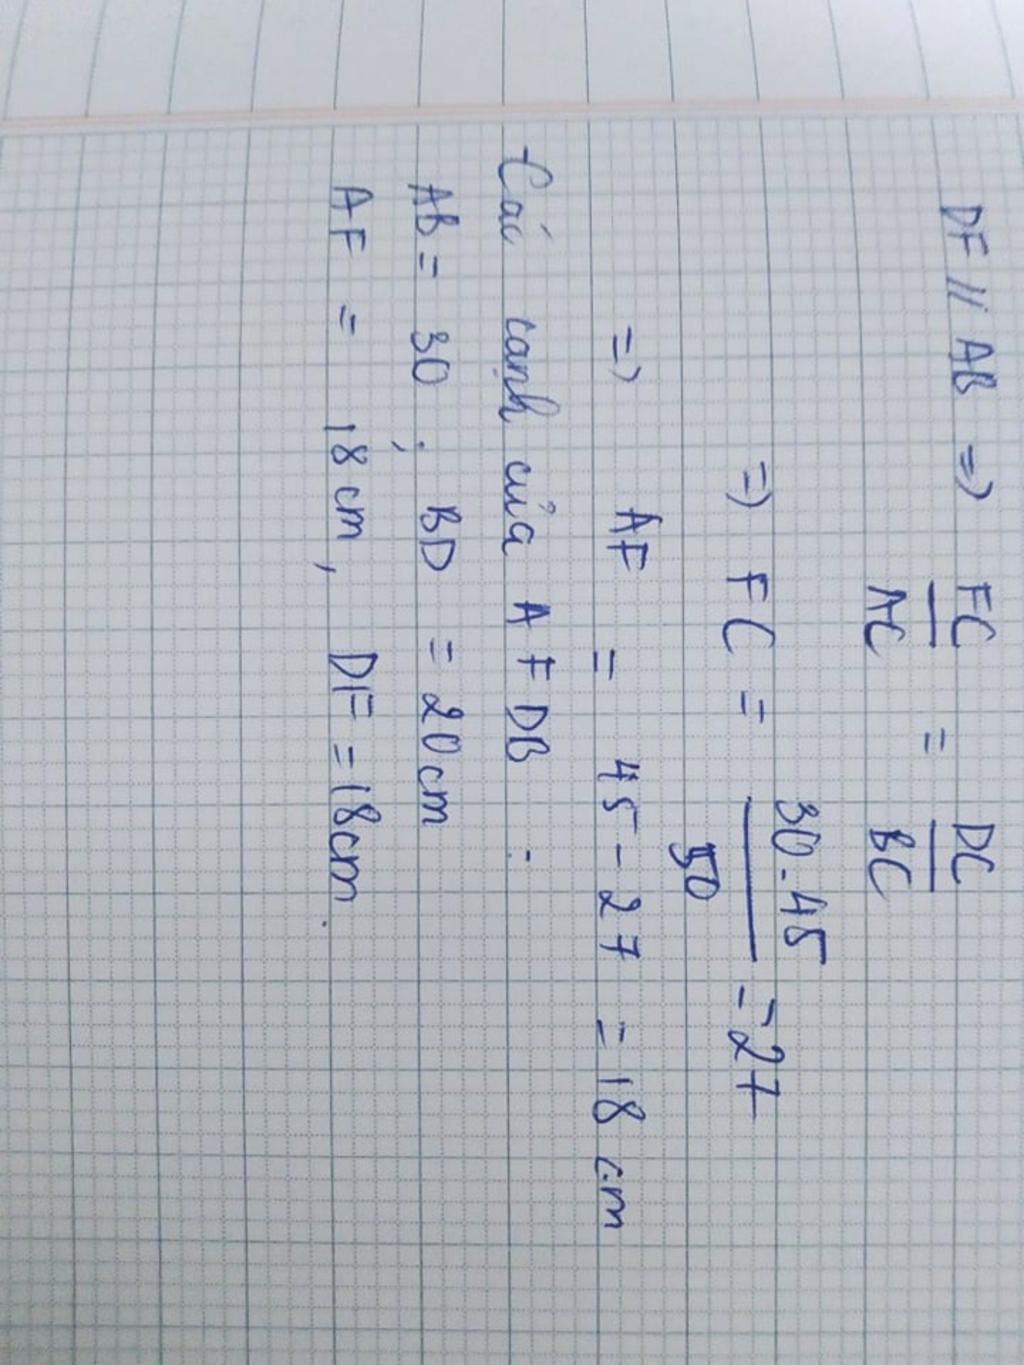 DF // AB => FC/AC = DC/BC
=> FC = 30.45/50 = 27
=> AF = 45 - 27 = 18 cm
Các cạnh của AFDB :
AB = 30 ; BD = 20cm
AF = 18cm, DF = 18cm.